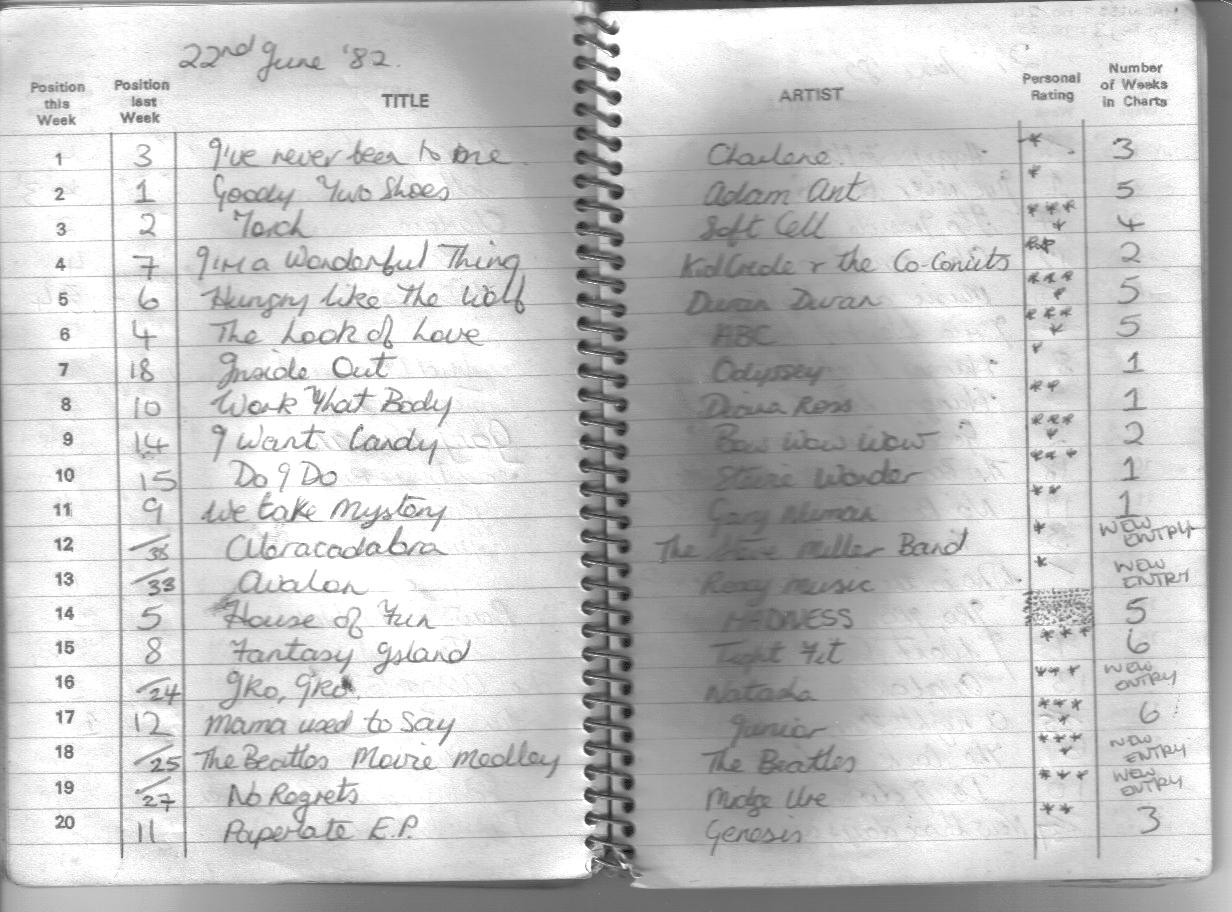 22nd June '82.
Position this Week Position last Week TITLE ARTIST Personal Rating Number of Weeks in Charts
1 3 I've never been to me. Charlene. * 3
2 1 Goody Two Shoes Adam Ant * 5
3 2 Torch Soft Cell **** 4
4 7 I'm a Wonderful Thing Kid Creole + the Co-Conuts 2
5 6 Hungry like The Wolf Duran Duran **** 5
6 4 The Look of Love ABC **** 5
7 18 Inside Out Odyssey * 1
8 10 Work That Body Diana Ross ** 1
9 14 I Want Candy Bow Wow Wow **** 2
10 15 Do I Do Stevie Wonder *** 1
11 9 We take Mystery Gary Numan ** 1
12 -/38 Abracadabra The Steve Miller Band * NEW ENTRY
13 -/33 Avalon Roxy Music * NEW ENTRY
14 5 House of Fun MADNESS 5
15 8 Fantasy Island Tight Fit *** 6
16 -/24 Iko, Iko Natasha *** NEW ENTRY
17 12 Mama used to Say Junior **** 6
18 -/25 The Beatles Movie Medley The Beatles **** NEW ENTRY
19 -/27 No Regrets Midge Ure *** NEW ENTRY
20 11 Paperlate E.P. Genesis ** 3